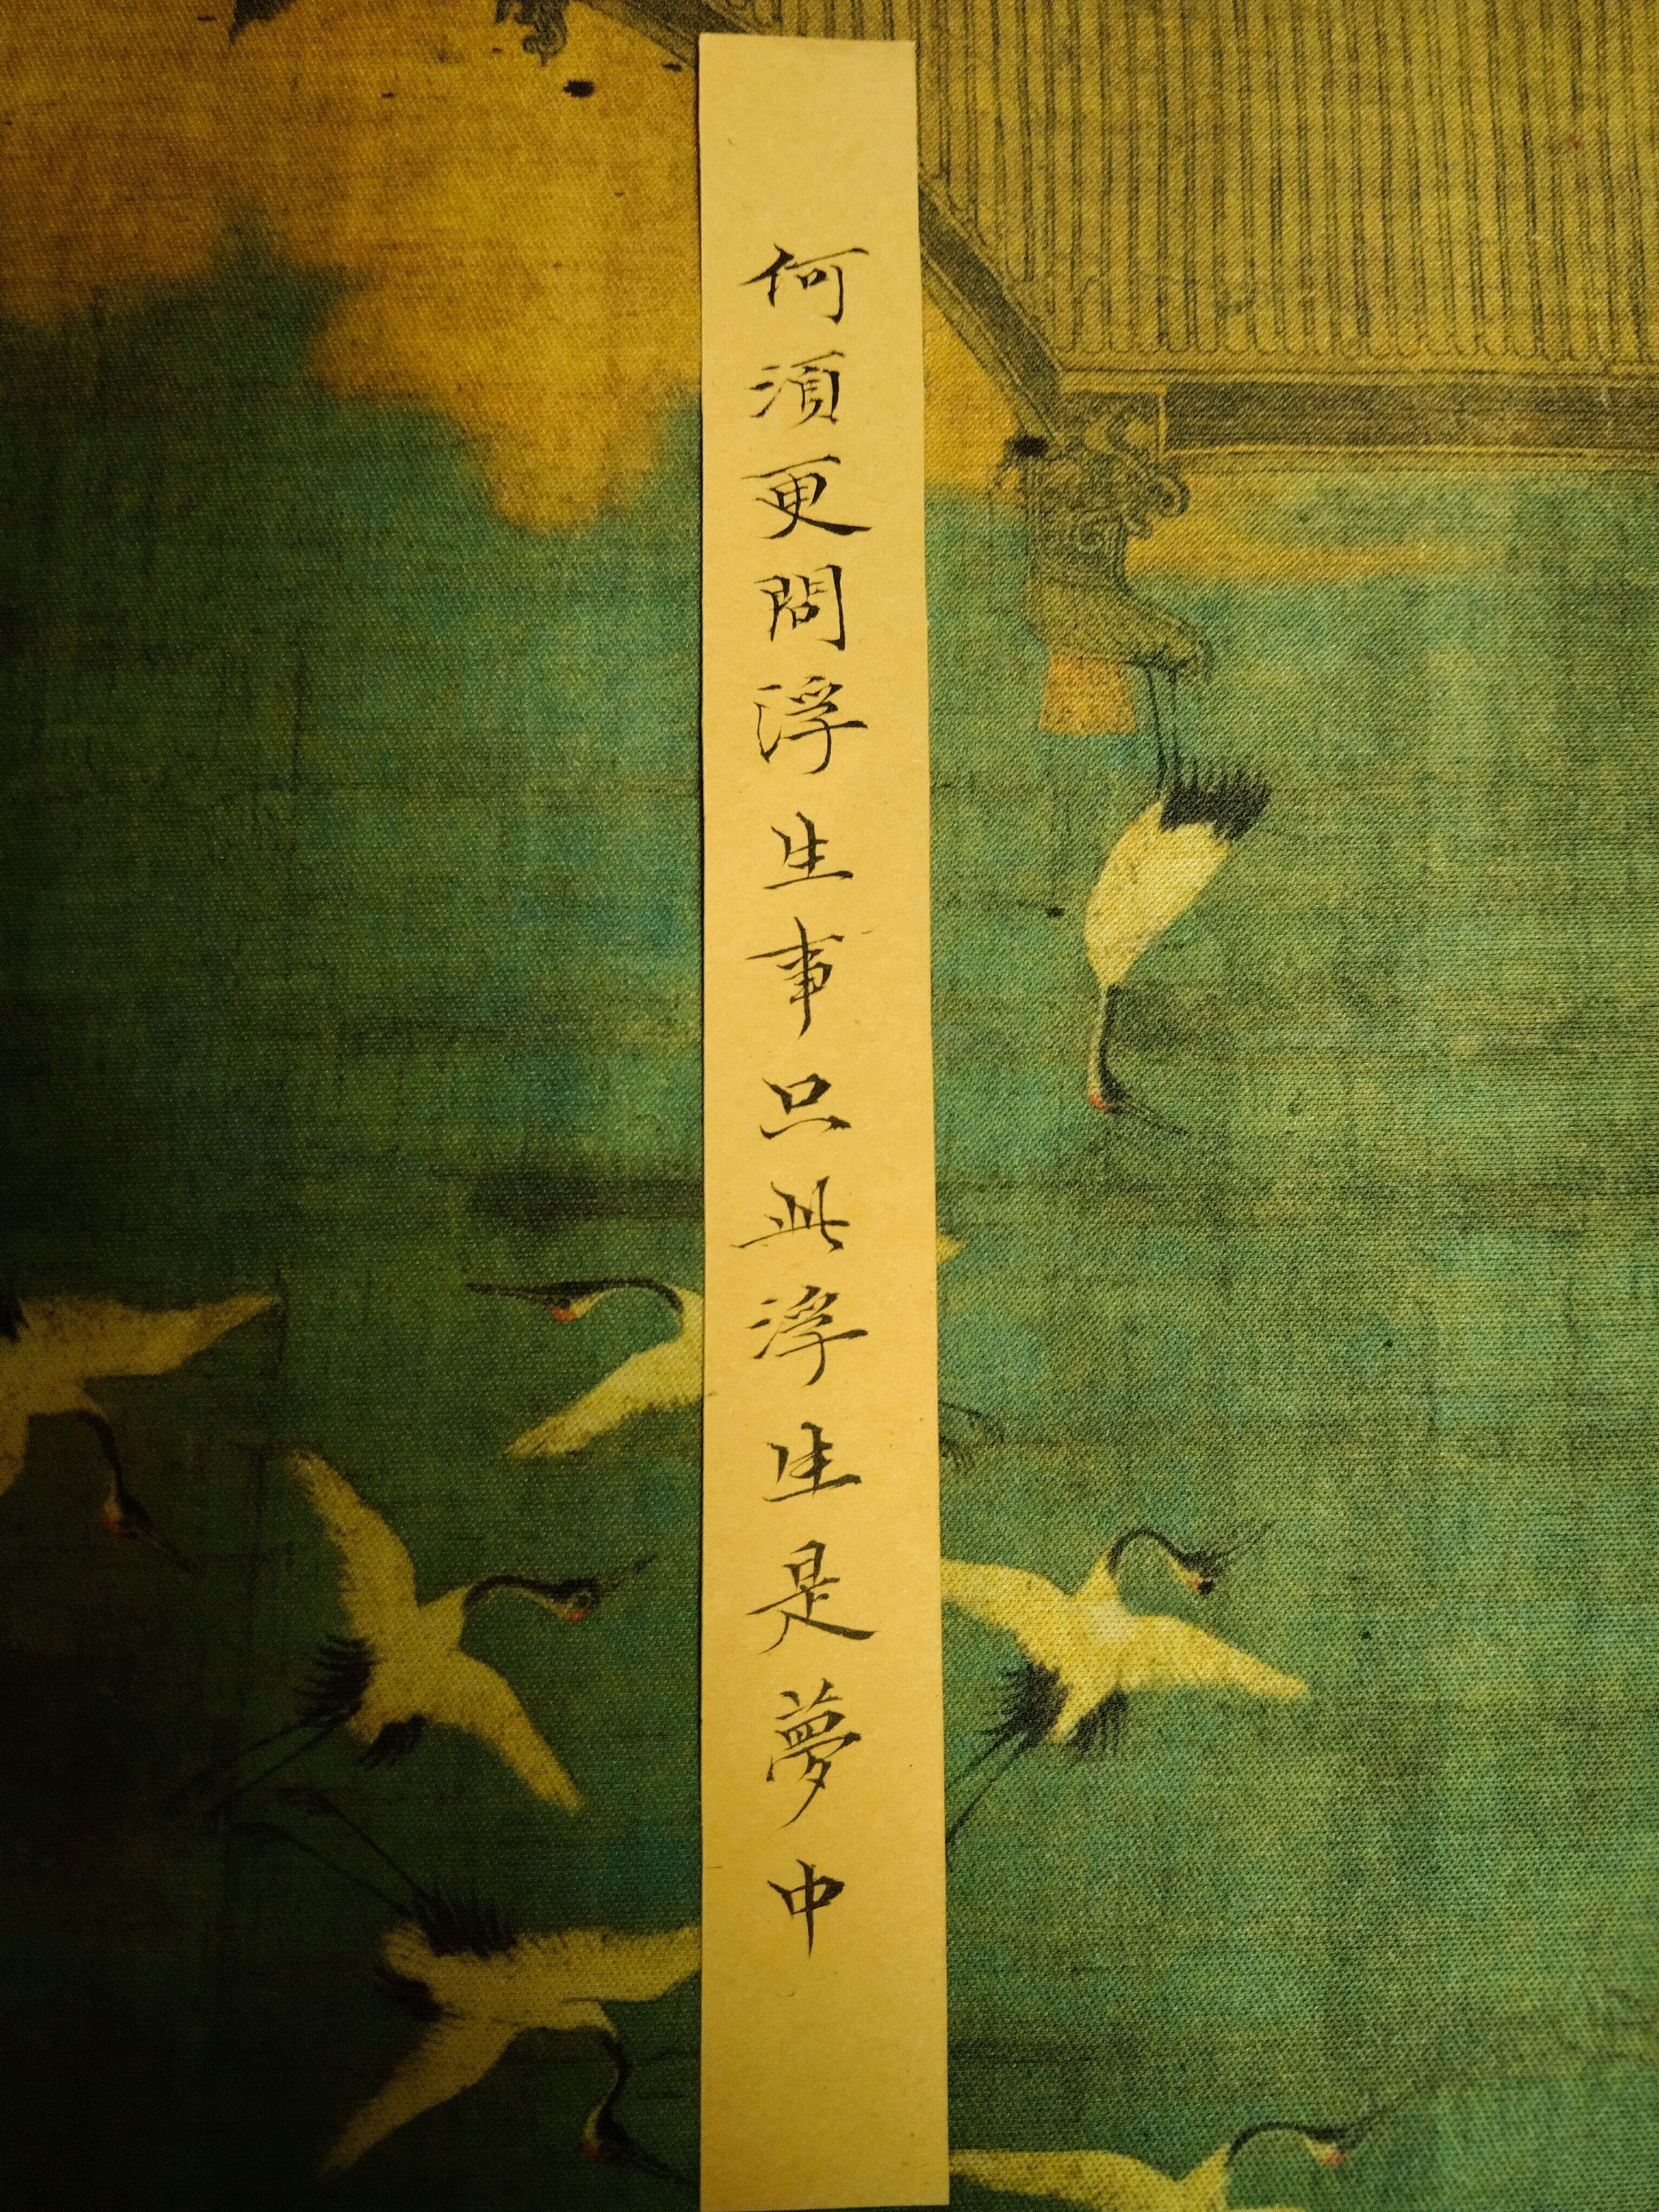 何須更問浮生事只此浮生是夢中